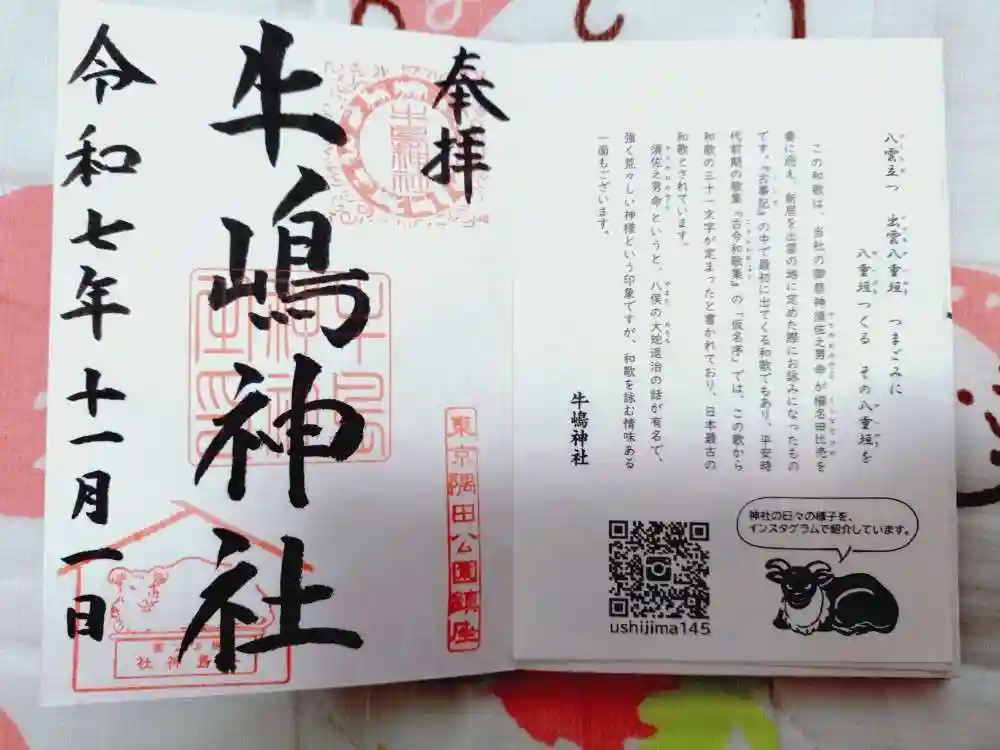 八雲立つ　出雲八重垣　つまごみに
八重垣つくる　その八重垣を
この和歌は、当社の御祭神須佐之男命が櫛名田比売を
妻に迎え、新居を出雲の地に定めた際にお詠みになったもの
です。『古事記』の中で最初に出てくる和歌でもあり、平安時
代前期の歌集『古今和歌集』の「仮名序」では、この歌から
和歌の三十一文字が定まったと書かれており、日本最古の
和歌とされています。
須佐之男命というと、八俣の大蛇退治の話が有名で、
強く荒々しい神様という印象ですが、和歌を詠む情味ある
一面もございます。
牛嶋神社
神社の日々の様子を、
インスタグラムで紹介しています。
ushijima145
奉拝
東京隅田公園鎮座
牛嶋神社
令和七年十一月一日